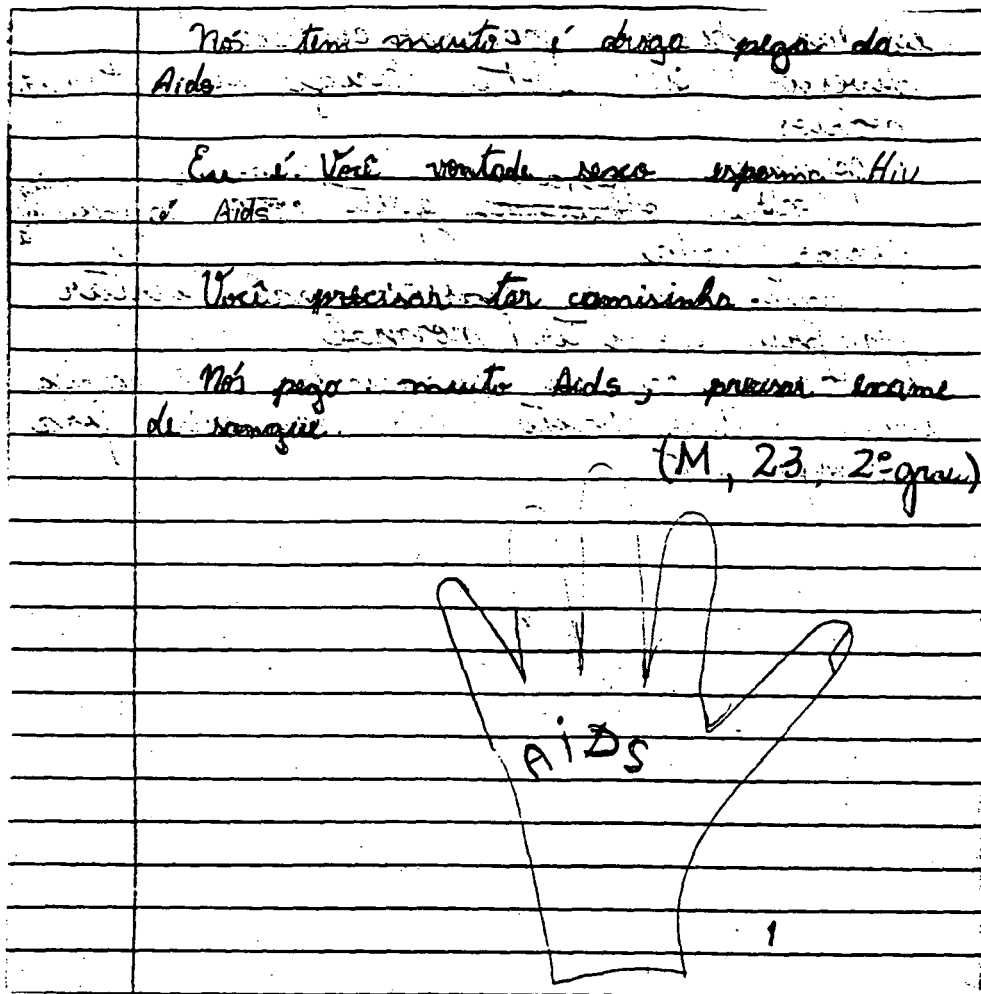 Nós tem muito é droga pega da
Aids
Eu é Você vontade sexo esperma Hiv
é Aids
Você precisar ter camisinha.
Nós pego muito Aids, precisar exame
de sangue.
(M, 23, 2º grau)
AiDS
1